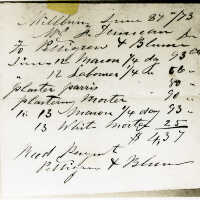 Millburn June 27th /73
Mr J.
To Pettigrew & Blum Dr
June 12 Mason 1/4 day 93
" 12 Laborer 1/4 68
plaster parris 80
plastern Morter 90
" 13 Mason 1/4 day 93
13 White Morter 25
$ 4,37
Recd Payment
Pettigrew & Blum